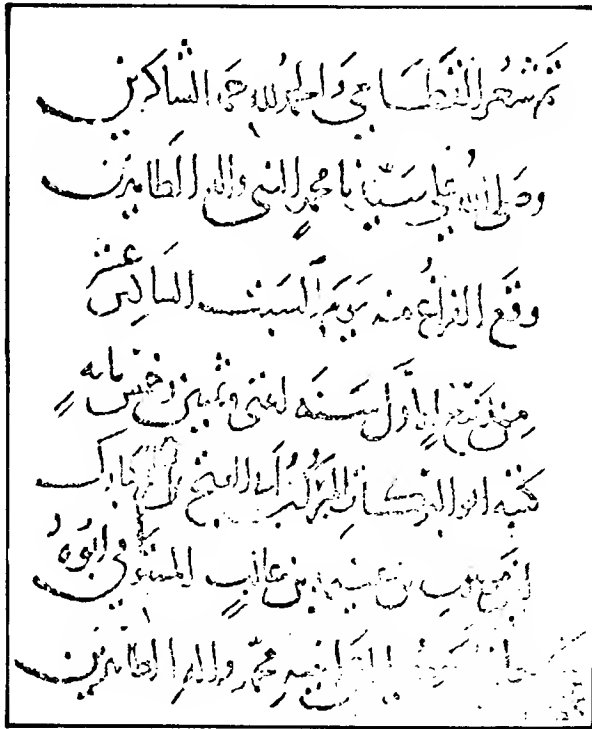 تم شعر القطامي والحمد لله حمد الشاكرين
وصلى الله على سيدنا محمد النبي واله الطاهرين
وقع الفراغ منه يوم السبت السادس عشر
من ربيع الاول سنة اثنى وثمنين وخمس مايه
كتبه ابو البركات المبارك بن ابي الفتح بن المبارك
بن موهوب بن غنيمة بن غالب المستوفي ابوه
محمد واله الطاهرين